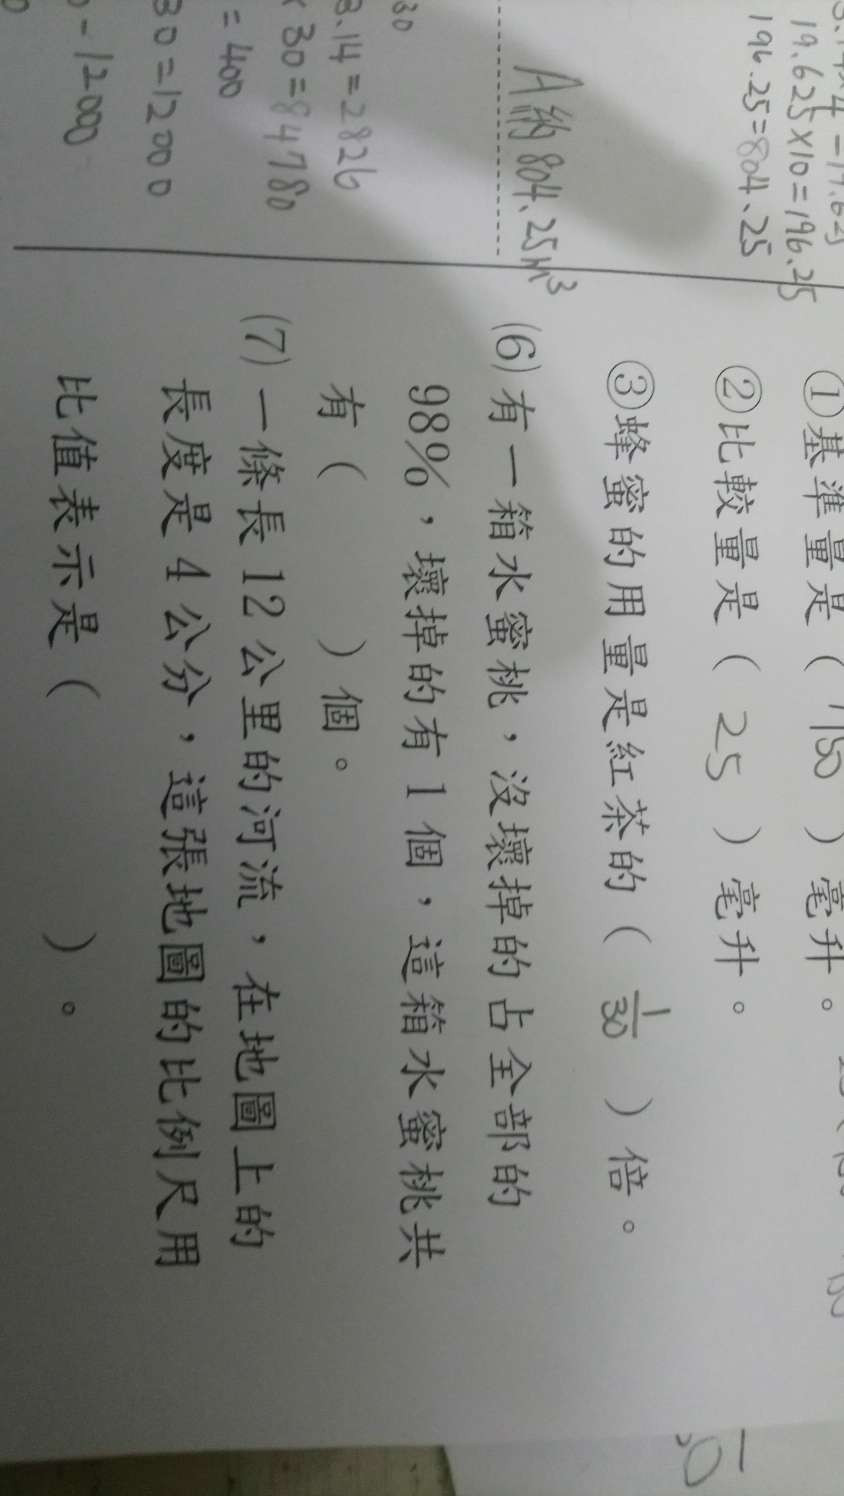 19.625×10=196.25
196.25=804.25
A約804.25m³
3.14=2826
30=84780
=400
30=12000
-12000
30
①基準量是( 750 )毫升。
②比較量是( 25 )毫升。
③蜂蜜的用量是紅茶的( 1/30 )倍。
(6)有一箱水蜜桃，沒壞掉的占全部的
98%，壞掉的有1個，這箱水蜜桃共
有( )個。
(7)一條長12公里的河流，在地圖上的
長度是4公分，這張地圖的比例尺用
比值表示是( )。